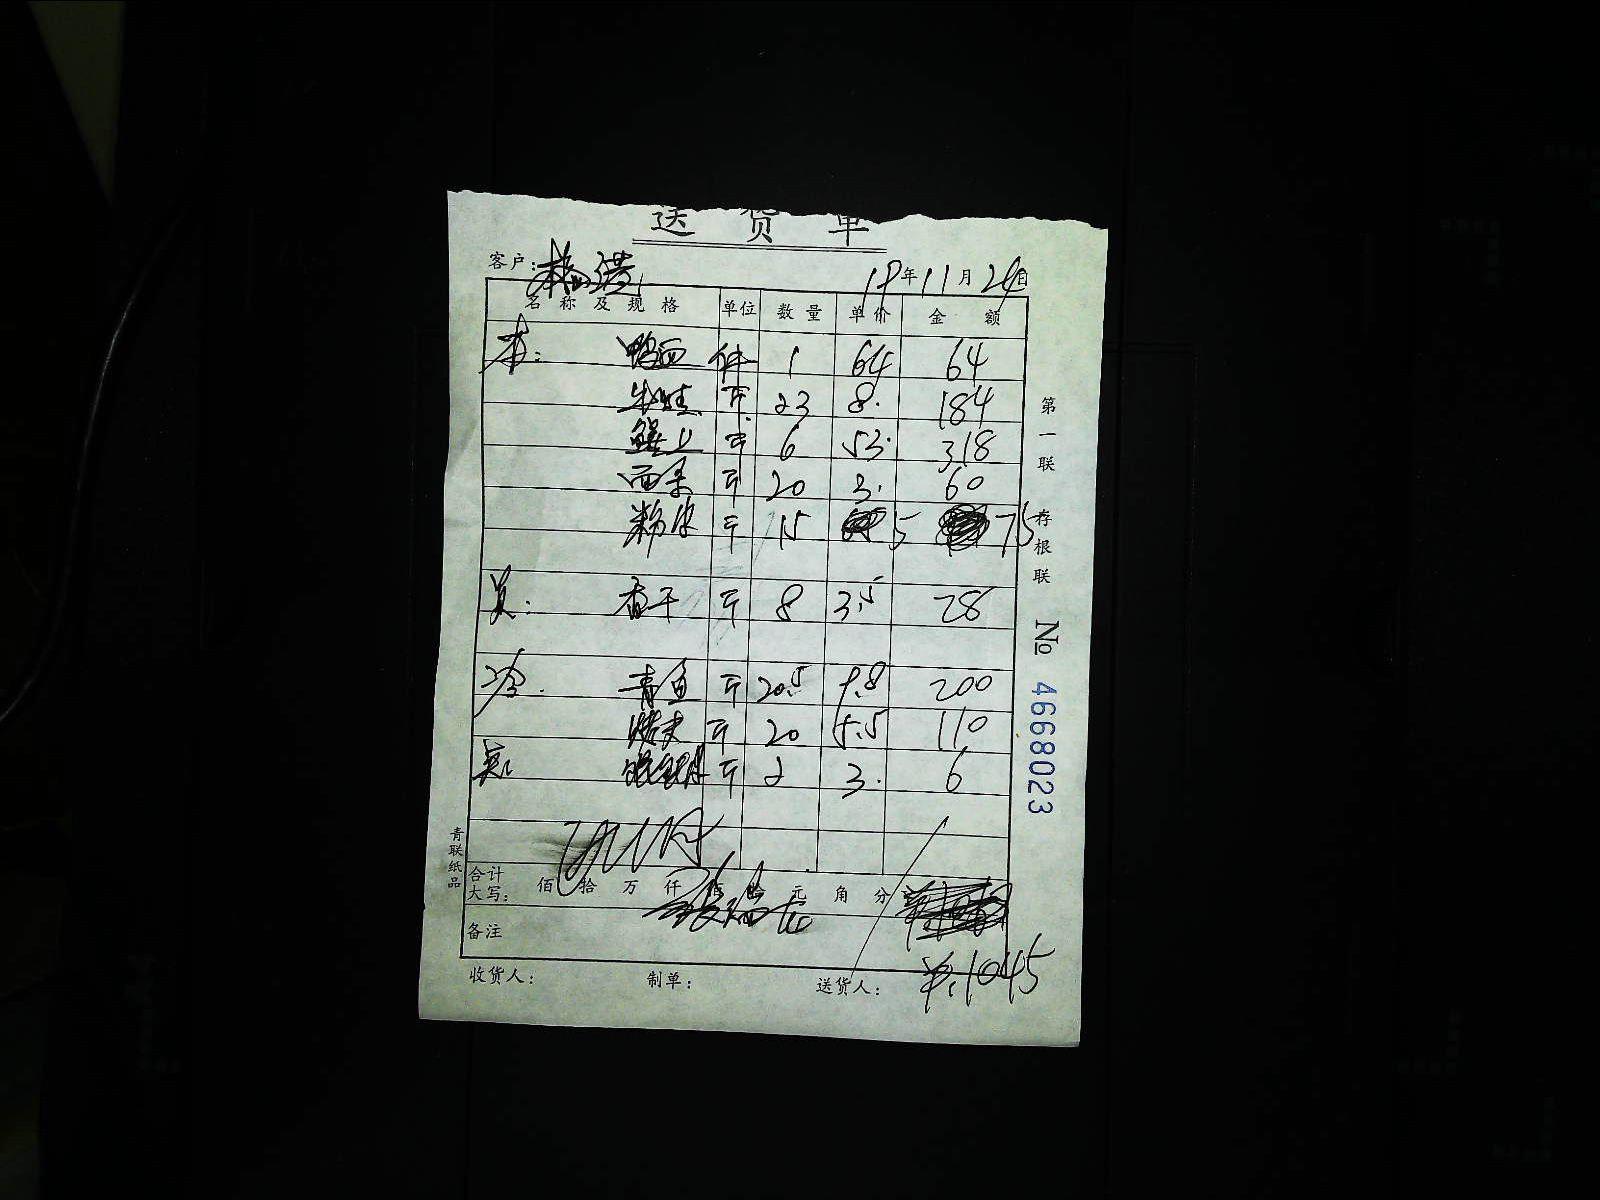 送 货 单
客户: 19年11月24日
名称及规格 单位 数量 单价 金额
本: 鸭血 件 1 64 64
牛蛙 斤 23 8. 184
斤 6 53. 318
西芹 斤 20 3. 60
粉皮 斤 15 5 75
吴: 香干 斤 8 3.5 28
冷. 青鱼 斤 20.5 9.8 200
烤夫 斤 20 5.5 110
斤 2 3. 6
合计
大写: 佰 拾 万 仟 佰 拾 元 角 分
备注
收货人: 制单: 送货人: ¥.1045
第一联 存根联 No 4668023
青联纸品